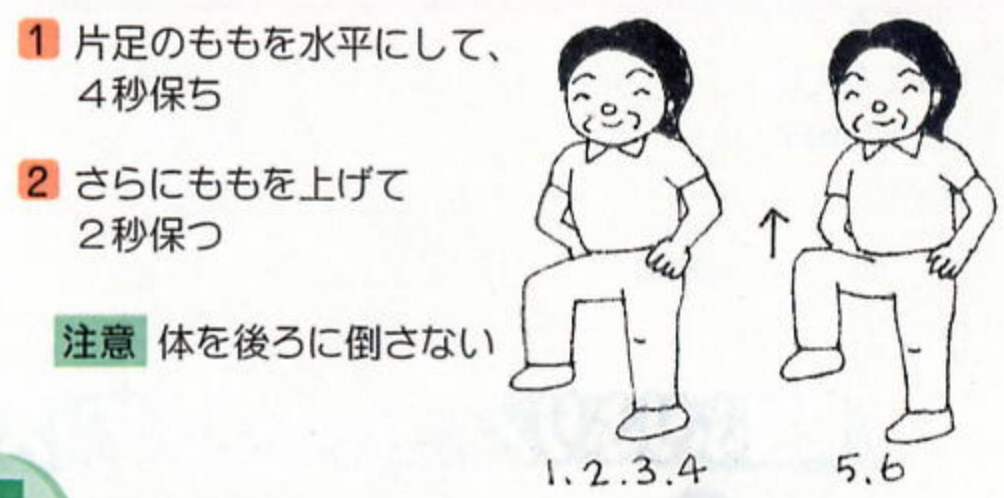 1 片足のももを水平にして、
4秒保ち
2 さらにももを上げて
2秒保つ
注意 体を後ろに倒さない
1.2.3.4
5.6